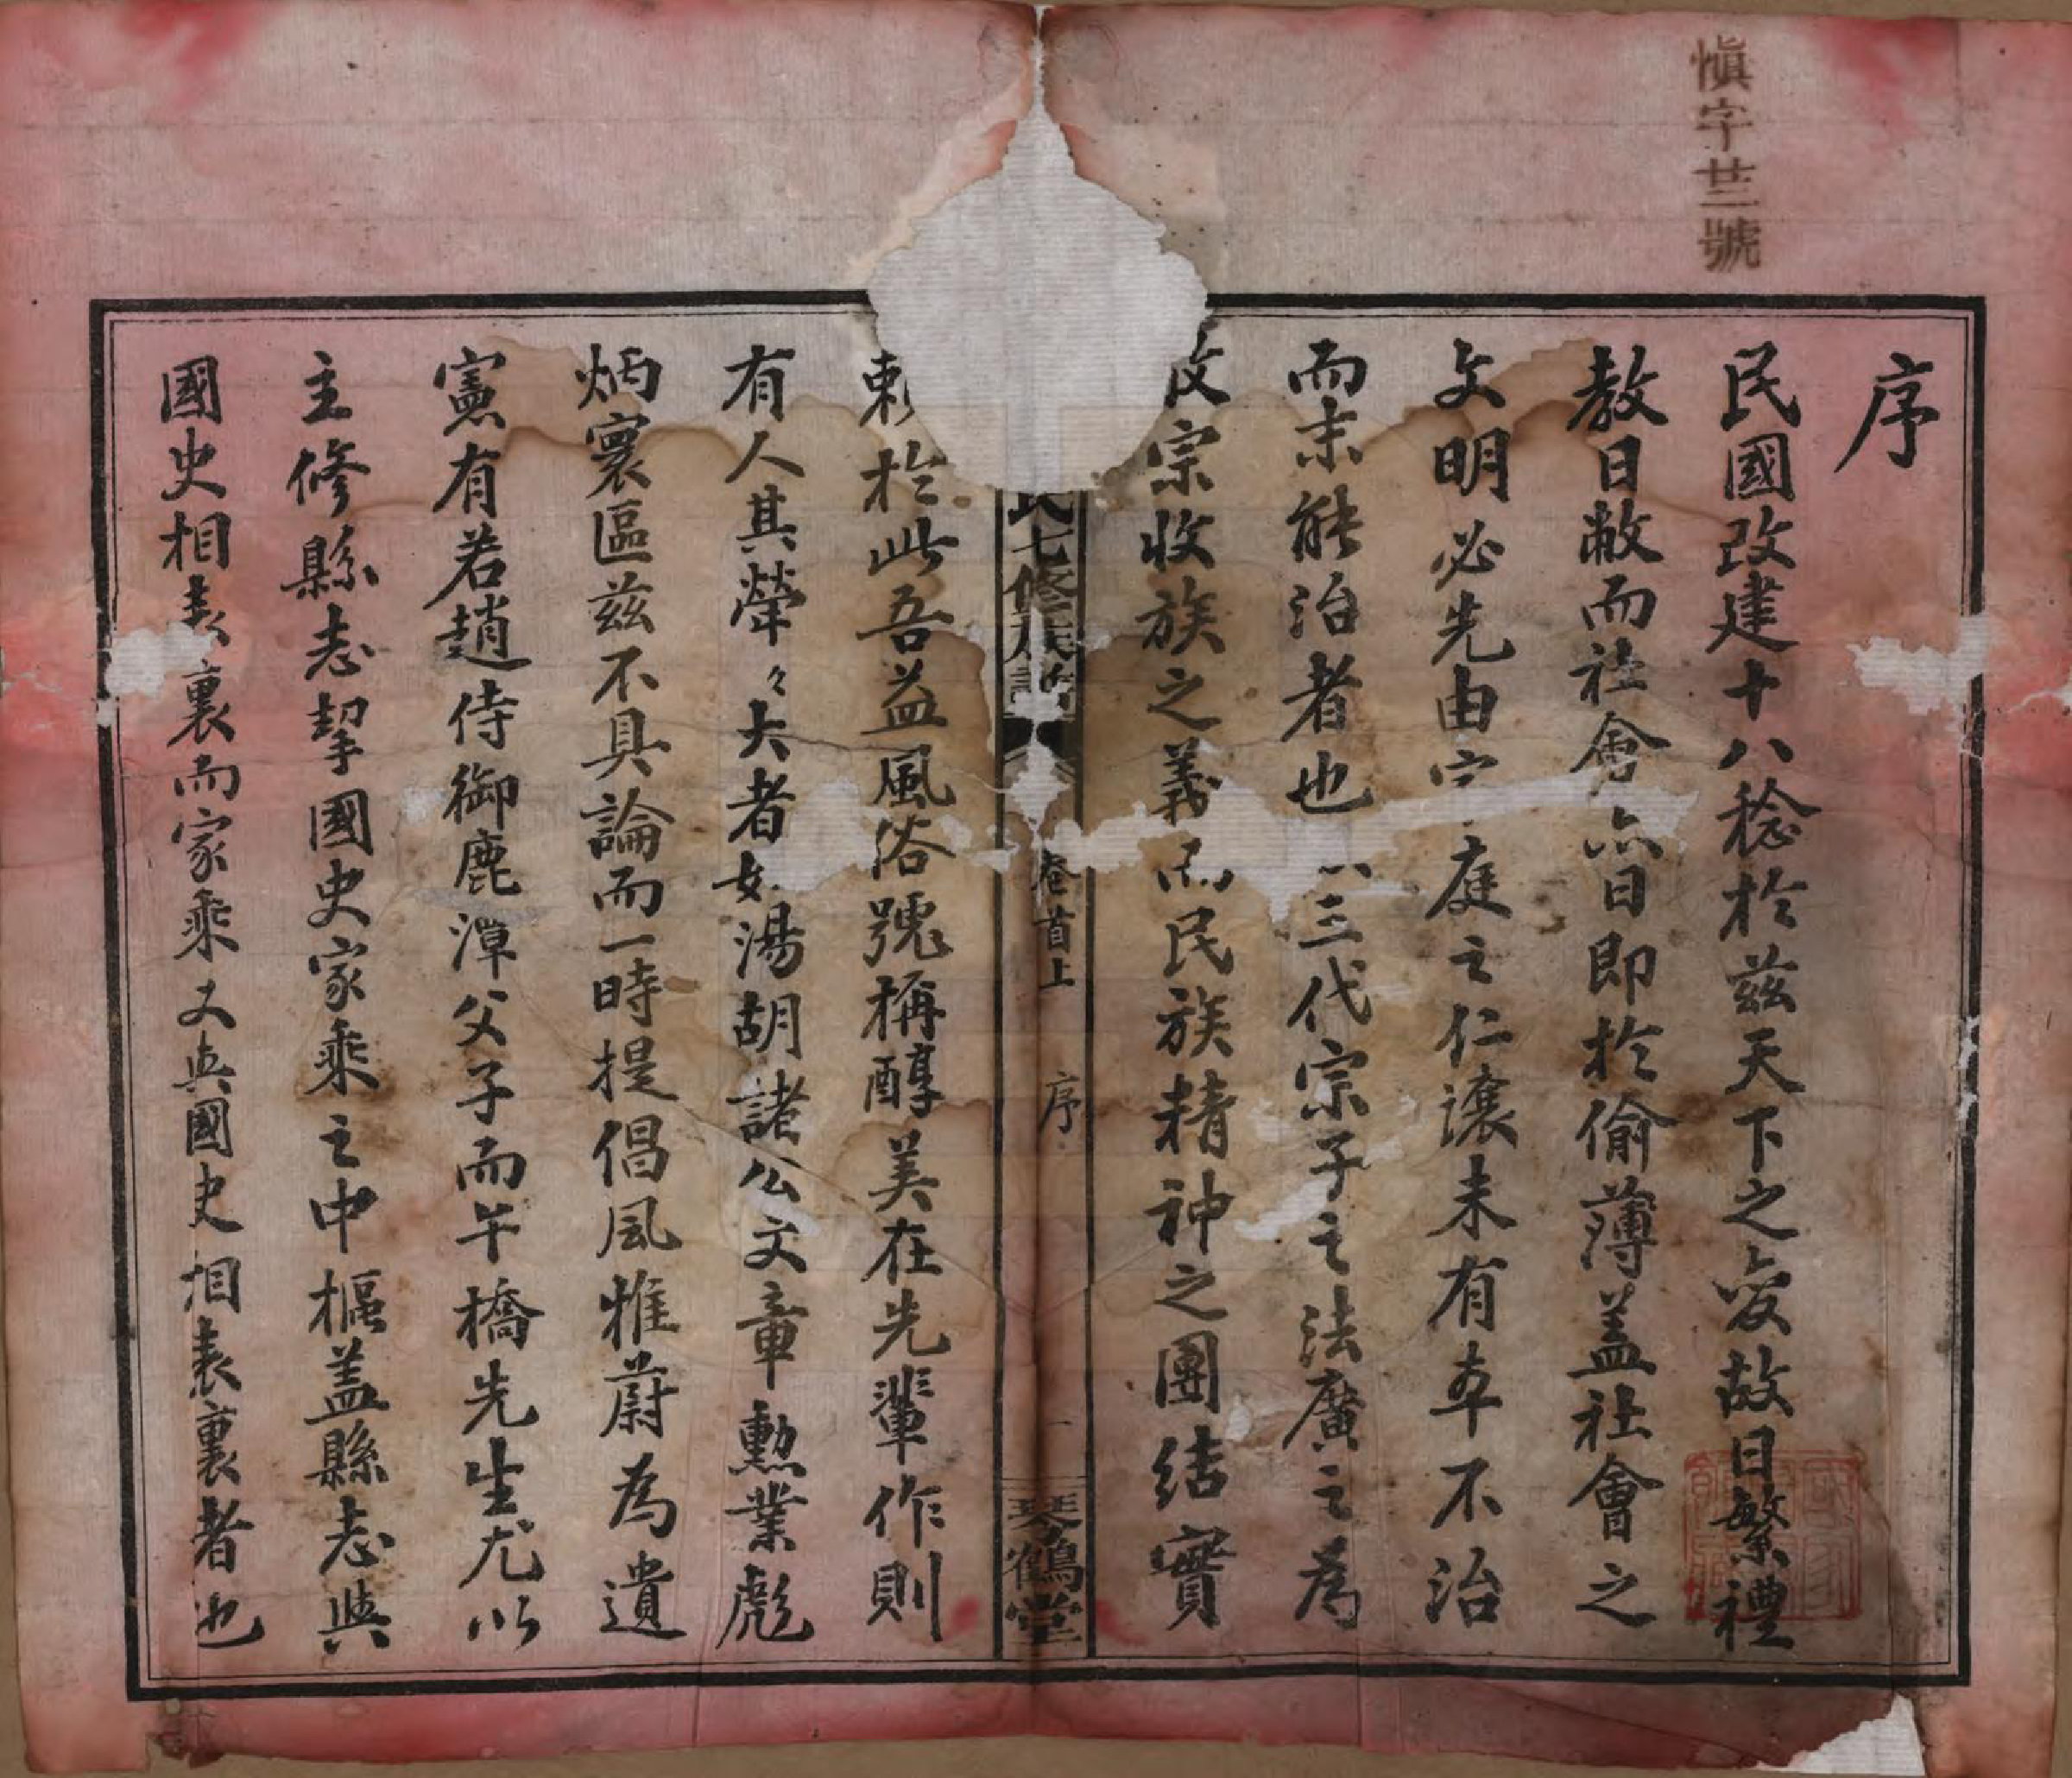 慎字廿三號
序
民國改建十八稔於茲天下之變故日繁禮
教日敝而社會亦日即於偷薄蓋社會之
文明必先由家庭之仁讓未有本不治
而末能治者也三代宗子之法廣之為
收宗收族之義而民族精神之團結實
賴於此吾益風俗號稱醇美在先輩作則
有人其犖々大者如湯胡諸公文章勳業彪
炳寰區茲不具論而一時提倡風雅蔚為遺
憲有若趙侍御鹿潭父子而芉橋先生尤以
主修縣志挈國史家乘之中樞蓋縣志與
國史相表裏而家乘又與國史相表裏者也
氏七修族譜
卷首上
序
一
琴鶴堂